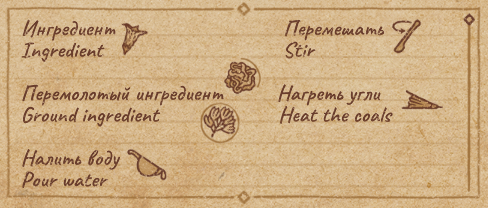 Ингредиент
Ingredient
Перемолотый ингредиент
Ground ingredient
Налить воду
Pour water
Перемешать
Stir
Нагреть угли
Heat the coals